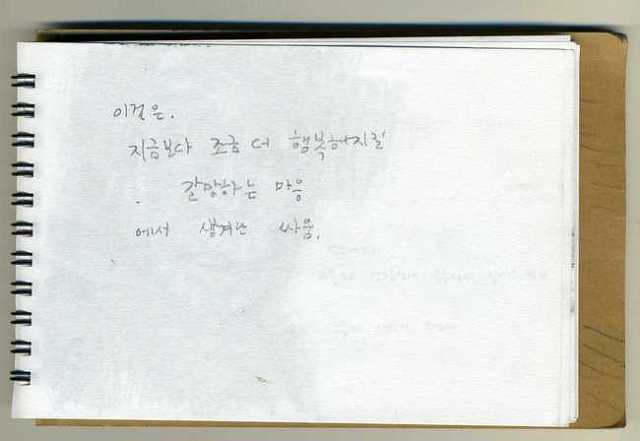 이것은.
지금보다 조금 더 행복해지길
갈망하는 마음
에서 생겨난 싸움.